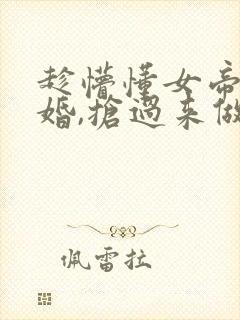 趁懵懂女帝
婚,搶過來做
佩雷拉